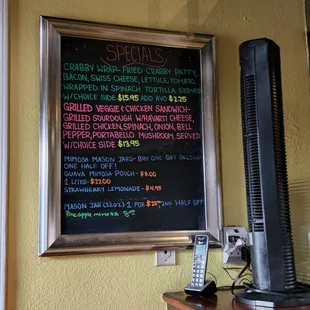 SPECIALS
CRABBY WRAP- FRIED CRABBY PATTY,
BACON, SWISS CHEESE, LETTUCE, TOMATO,
WRAPPED IN SPINACH TORTILLA SERVED
W/CHOICE SIDE. $15.95 ADD AVO $2.25
GRILLED VEGGIE & CHICKEN SANDWICH-
GRILLED SOURDOUGH W/HAVARTI CHEESE,
GRILLED CHICKEN, SPINACH, ONION, BELL
PEPPER, PORTABELLO MUSHROOM. SERVED
W/CHOICE SIDE $13.95
MIMOSA MASON JARS- BUY ONE GET SECOND
ONE HALF OFF!
GUAVA MIMOSA POUCH - $8.00
1 LITER- $22.00
STRAWBERRY LEMONADE - $4.95
MASON JAR (32OZ) 1 FOR $25 2ND HALF OFF
Pineapple mimosa